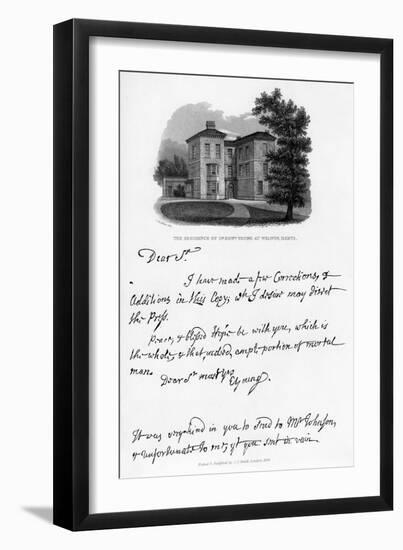 THE RESIDENCE OF Dr. EDWd. YOUNG AT WELWYN, HERTS.
Dear Sr.
I have made a few Corrections, &
Additions in this Copy; wh I desire may direct
the Press.
Peace, & blessed Hope be with you, which is
the whole, & that, indeed, ample portion of mortal
man.
Dear Sr most yrs
EYoung.
It was very kind in you to send to Mr Johnson,
& Unfortunate to me, yt you sent in vain.
London